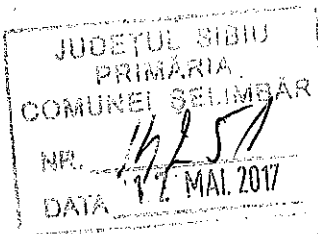 JUDEŢUL SIBIU
PRIMĂRIA
COMUNEI ŞELIMBĂR
NR.
DATA 17. MAI. 2017